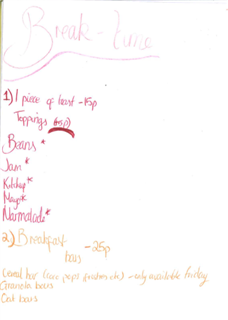 Break-time
1) 1 piece of toast -15p
Toppings (5p)
Beans *
Jam *
Ketchup *
Mayo *
Marmalade *
2.) Breakfast
bars -25p
Cereal bar (coco pops, etc) - only available friday
Granola bars
Oat bars